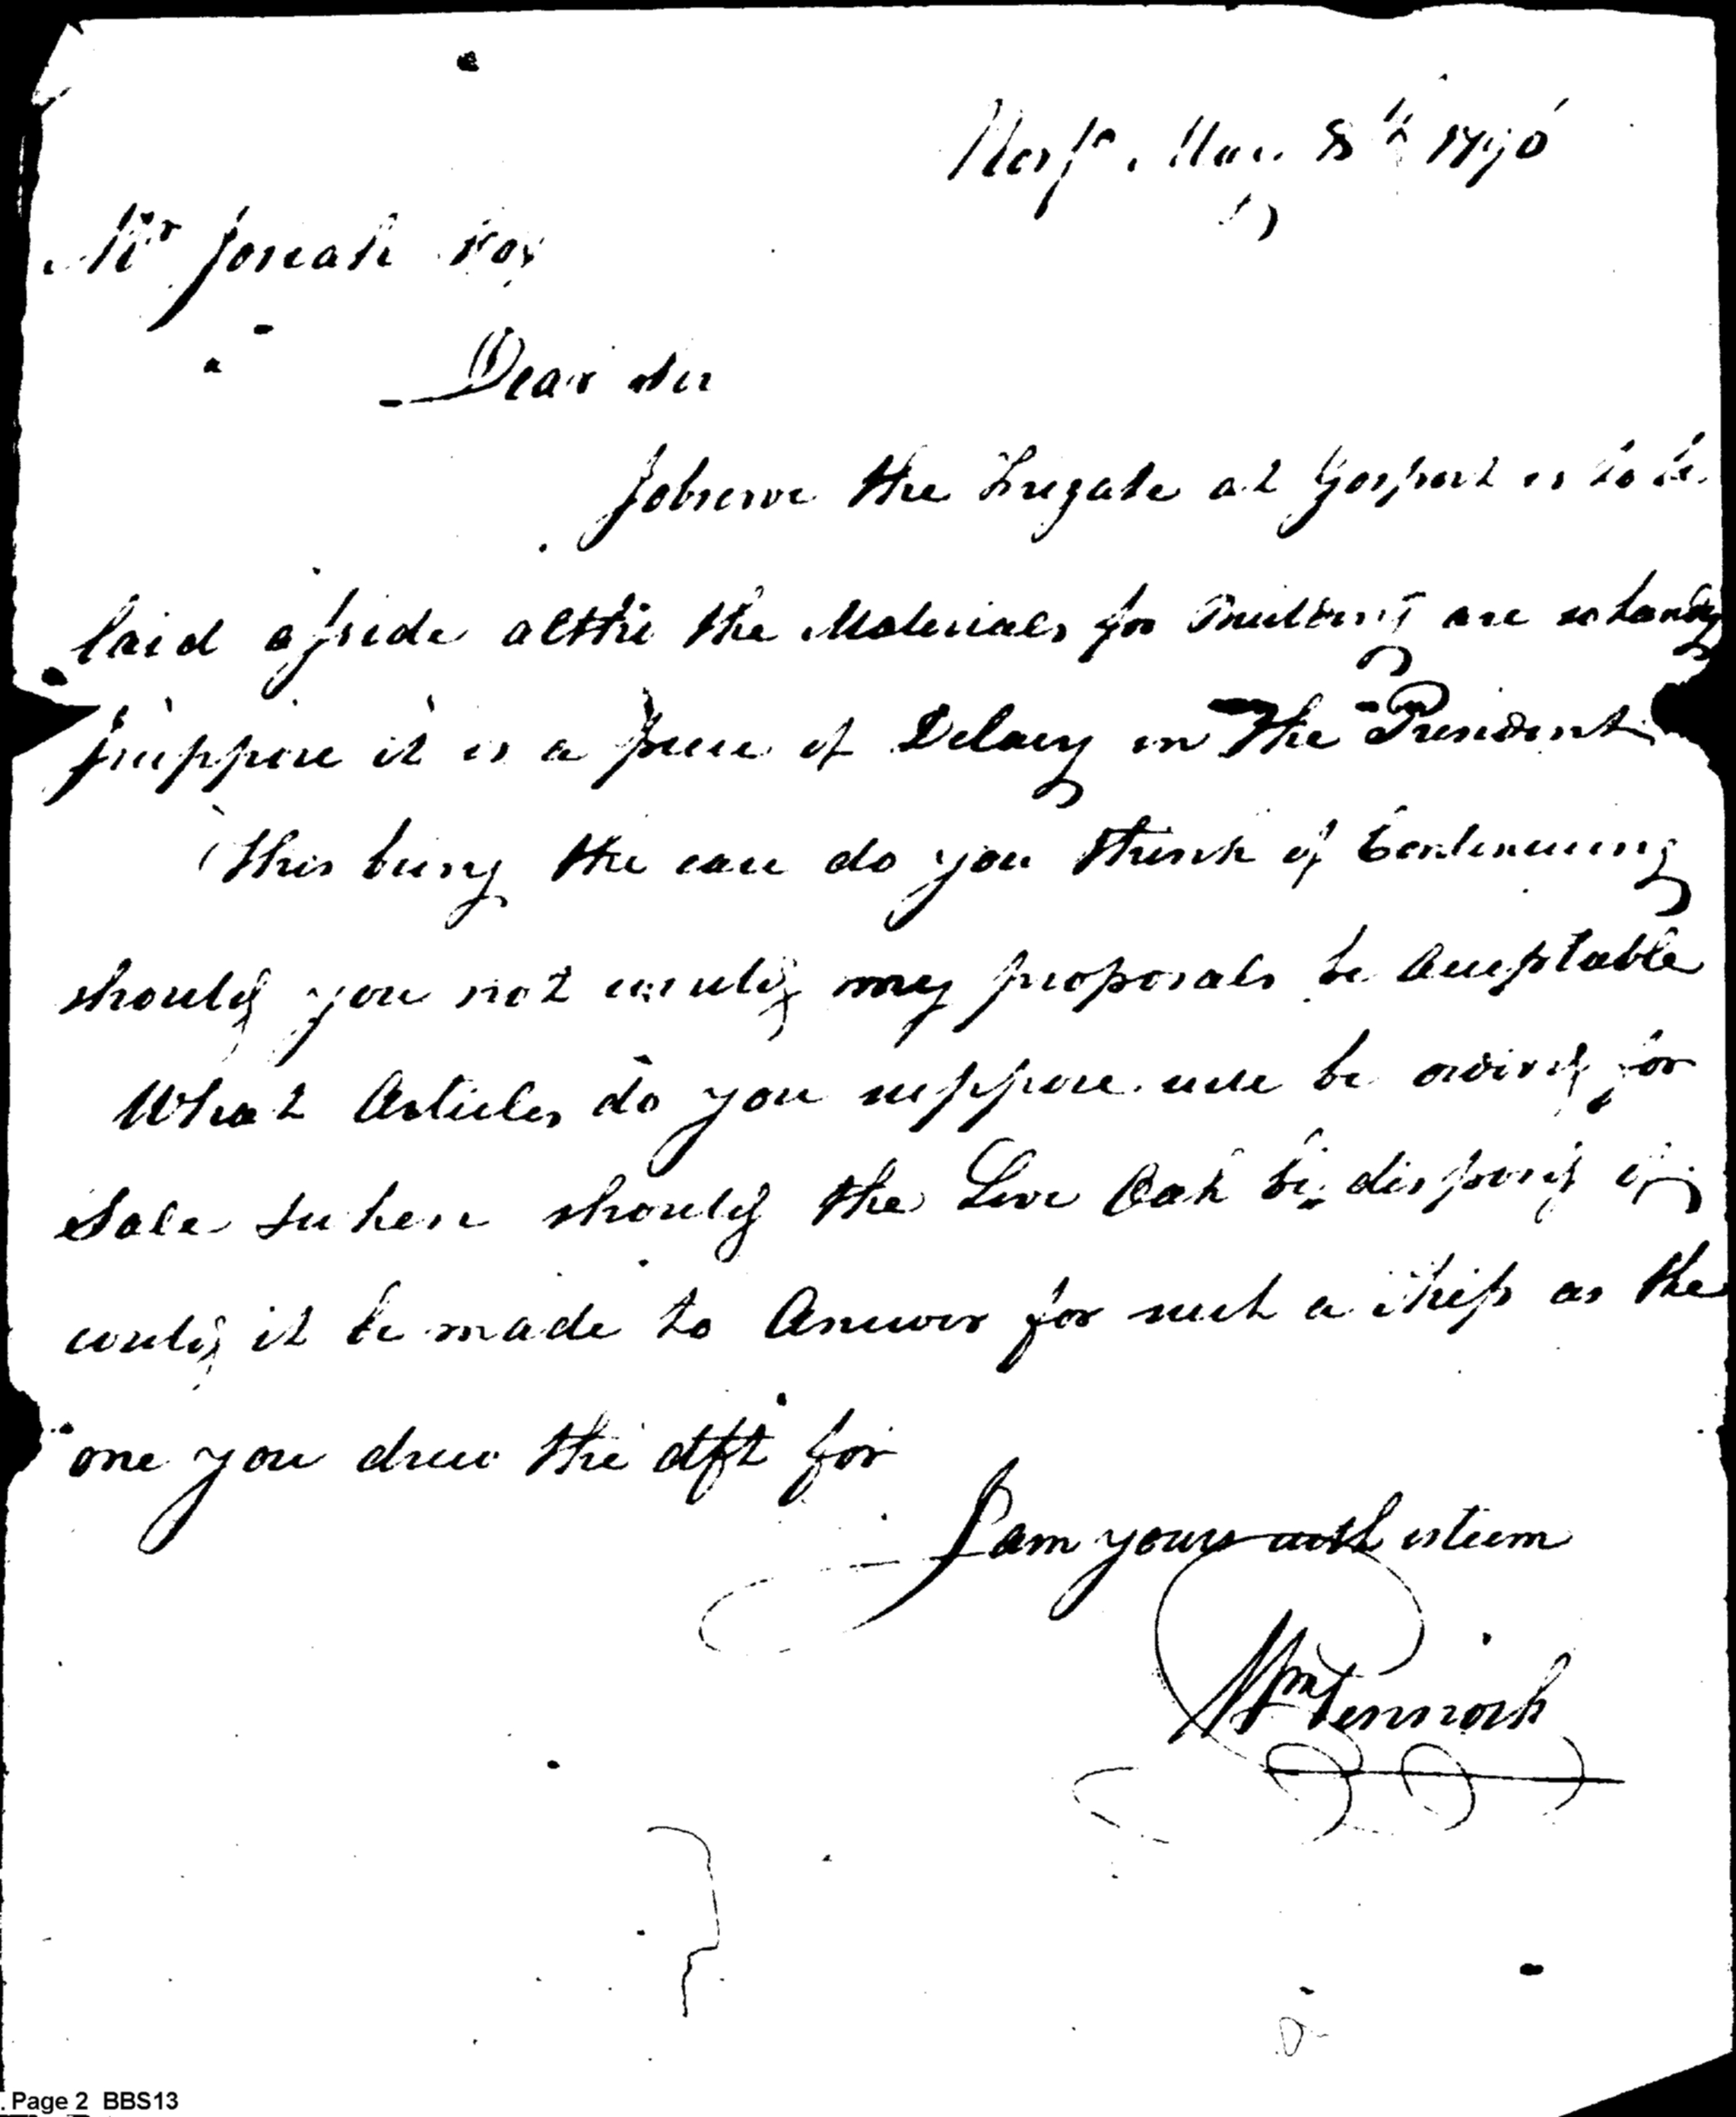 Norfo. Mar. 8th 1796
Mr Josiah Fox
Dear Sir
I observe the Frigate at Gosport is to be
laid aside altho the Materials for Building are
I suppose it is a piece of Delacy in The President
This being the case do you think of Continuing
should you not would my proposals be Acceptable
What Articles do you suppose will be for
Sale when should the Live Oak be disposd of
could it be made to Answer for such a Ship as the
one you drew the dft for
I am yours with esteem
Wm Pennock
. Page 2 BBS13